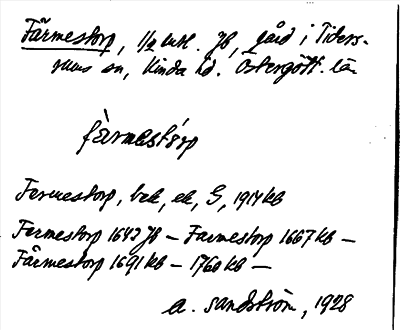 Färmestorp, 1/2 mtl. jb, gård i Tiders-
rums sn, Kinda hd. Östergött. län
fàrmestórp
Fermestorp, bek, ek, G, 1914 kb
Fermestorp 1643 jb – Farmestorp 1667 kb –
Färmestorp 1691 kb – 1760 kb –
A. Sandström, 1928